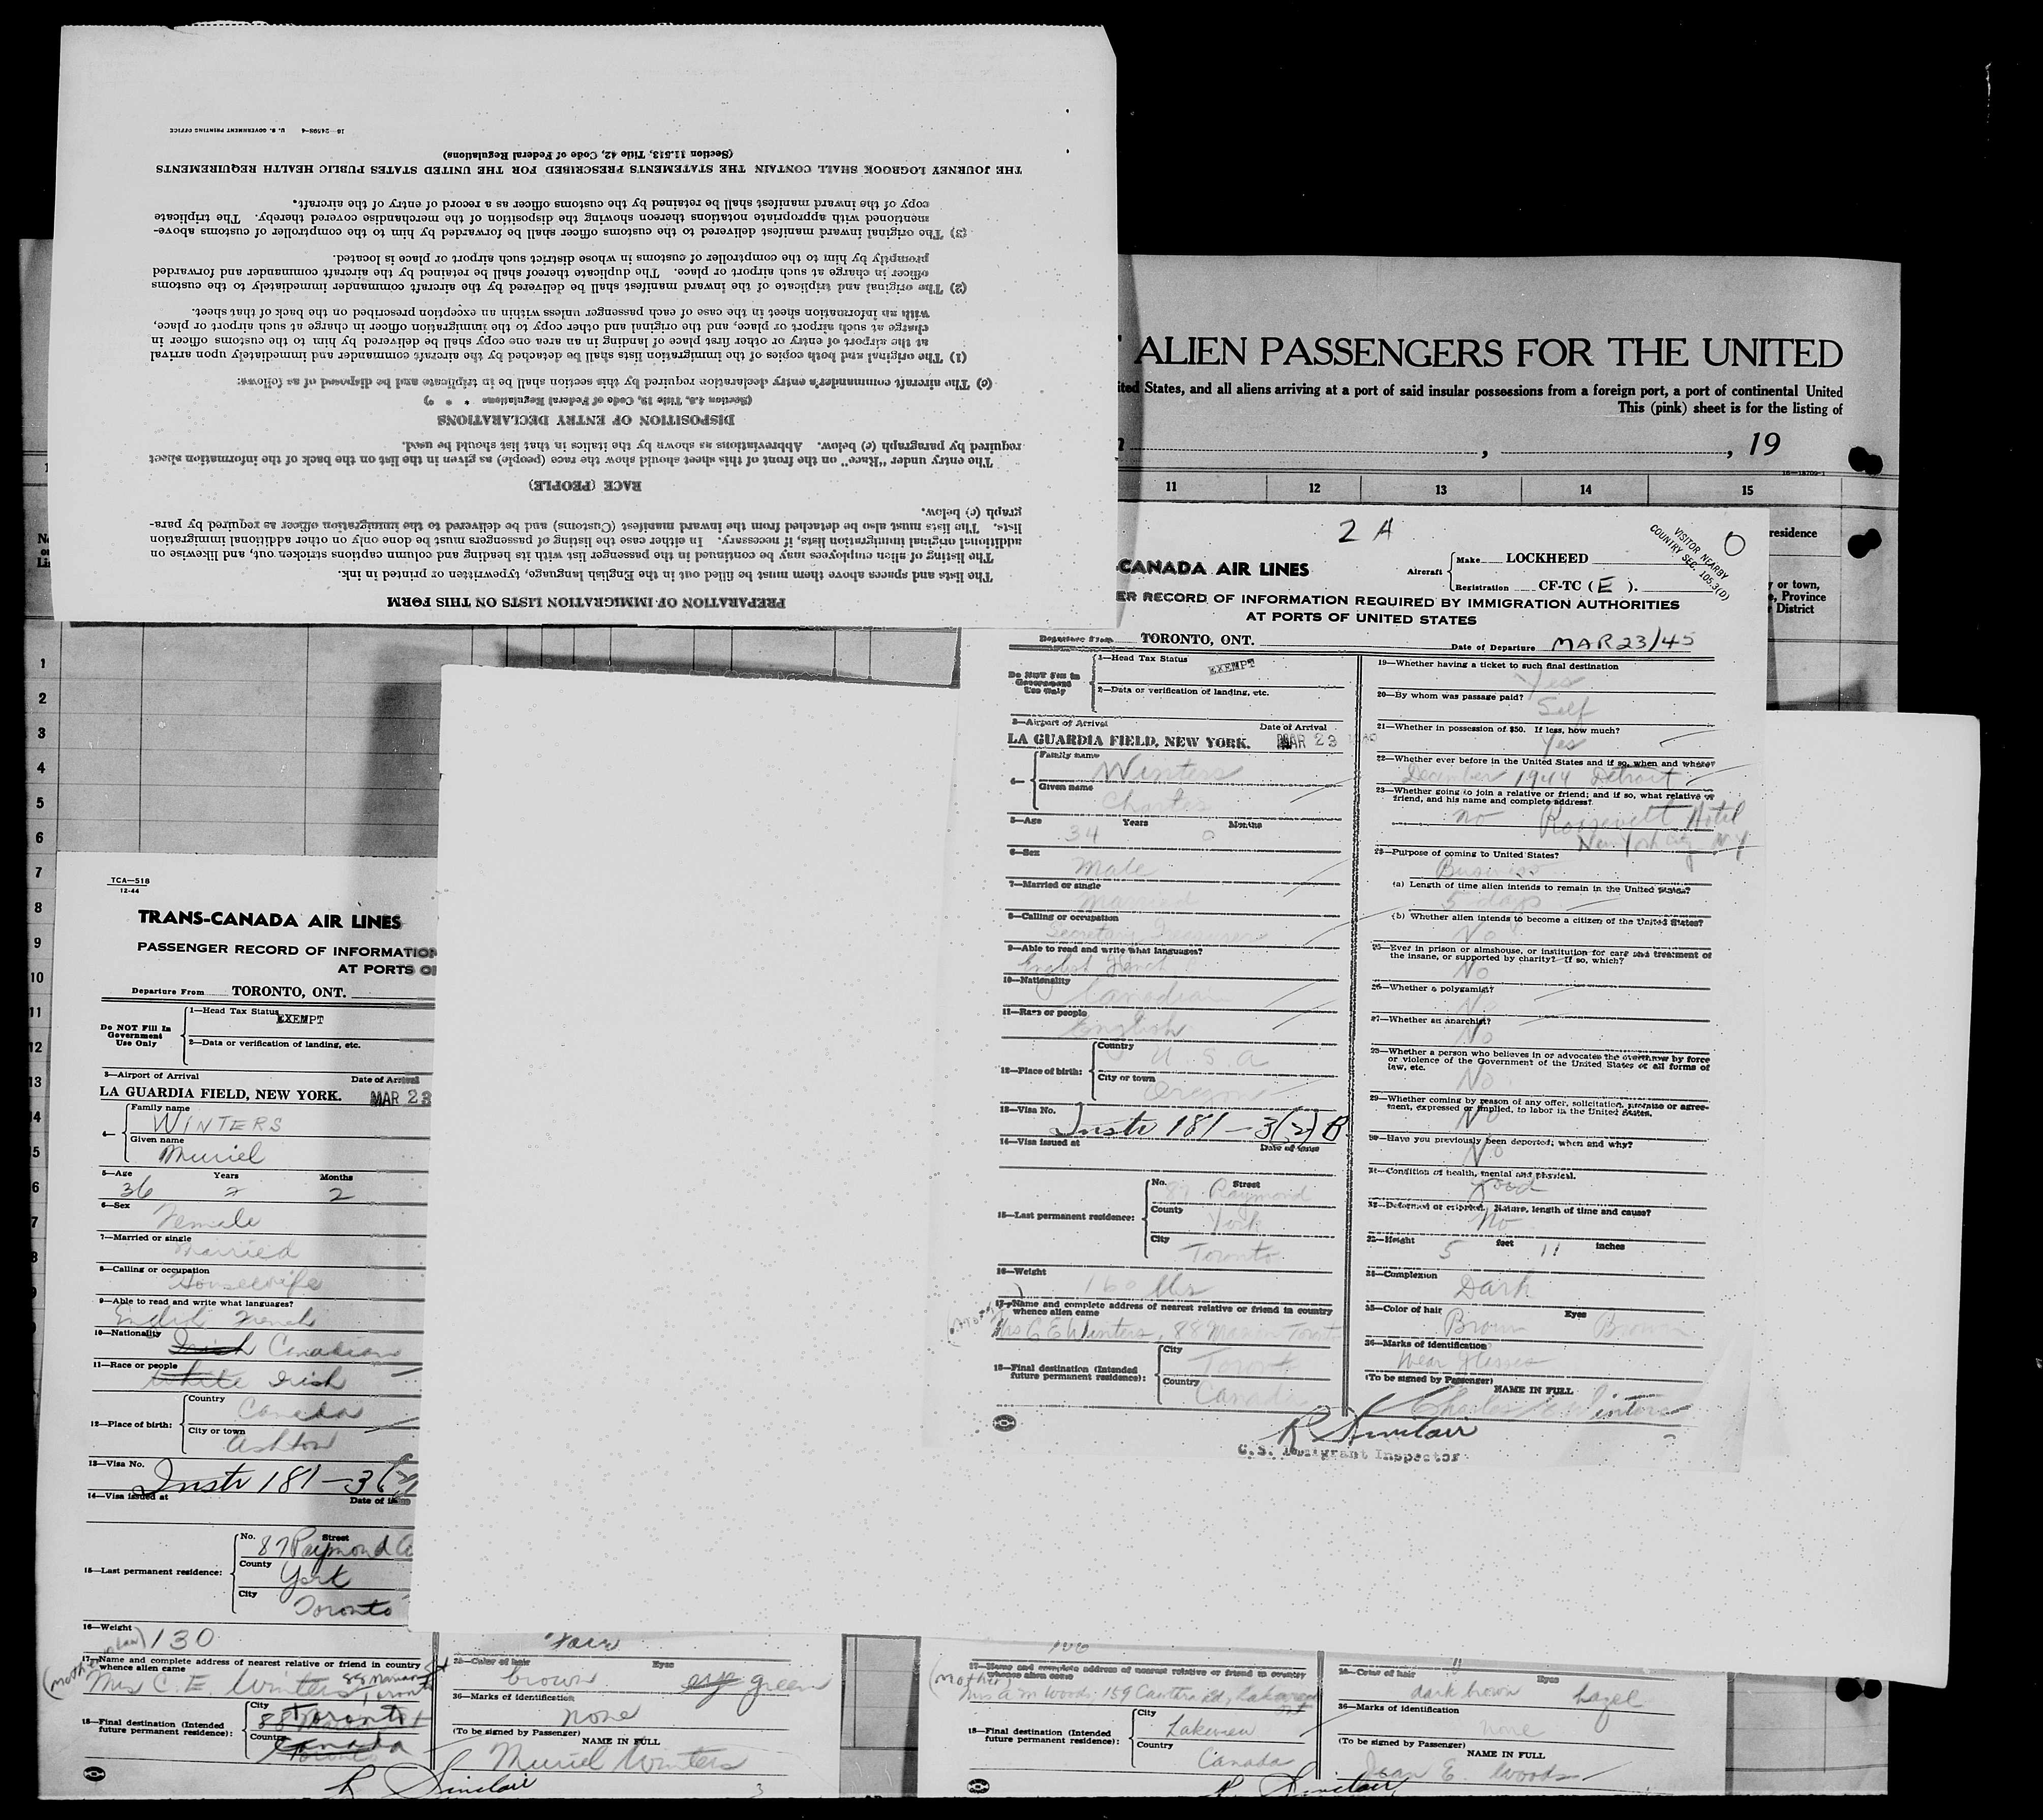 PREPARATION OF IMMIGRATION LISTS ON THIS FORM
The lists and spaces above them must be filled out in the English language, typewritten or printed in ink.
The listing of alien employees may be continued in the passenger list with its heading and column captions stricken out, and likewise on
additional original immigration lists, if necessary. In either case the listing of passengers must be done only on other additional immigration
lists. The lists must also be detached from the inward manifest (Customs) and be delivered to the immigration officer as required by para-
graph (c) below.
RACE (PEOPLE)
The entry under "Race" on the front of this sheet should show the race (people) as given in the list on the back of the information sheet
required by paragraph (c) below. Abbreviations as shown by the italics in that list should be used.
DISPOSITION OF ENTRY DECLARATIONS
(Section 4.8, Title 19, Code of Federal Regulations * * *)
(c) The aircraft commander's entry declaration required by this section shall be in triplicate and be disposed of as follows:
(1) The original and both copies of the immigration lists shall be detached by the aircraft commander and immediately upon arrival
at the airport of entry or other first place of landing in an area one copy shall be delivered by him to the customs officer in
charge at such airport or place, and the original and other copy to the immigration officer in charge at such airport or place,
with an information sheet in the case of each passenger unless within an exception prescribed on the back of that sheet.
(2) The original and triplicate of the inward manifest shall be delivered by the aircraft commander immediately to the customs
officer in charge at such airport or place. The duplicate thereof shall be retained by the aircraft commander and forwarded
promptly by him to the comptroller of customs in whose district such airport or place is located.
(3) The original inward manifest delivered to the customs officer shall be forwarded by him to the comptroller of customs above-
mentioned with appropriate notations thereon showing the disposition of the merchandise covered thereby. The triplicate
copy of the inward manifest shall be retained by the customs officer as a record of entry of the aircraft.
THE JOURNEY LOGBOOK SHALL CONTAIN THE STATEMENTS PRESCRIBED FOR THE UNITED STATES PUBLIC HEALTH REQUIREMENTS
(Section 11.513, Title 42, Code of Federal Regulations)
16—24598-4 U. S. GOVERNMENT PRINTING OFFICE
ALIEN PASSENGERS FOR THE UNITED
ited States, and all aliens arriving at a port of said insular possessions from a foreign port, a port of continental United
This (pink) sheet is for the listing of
, , 19
16—18709-1
11 12 13 14 15
residence
y or town,
e, Province
District
1
2
3
4
5
6
7
8
9
10
11
12
13
14
15
6
7
8
9
2 A
O
VISITOR NEARBY
COUNTRY SEC. 105.3(D)
-CANADA AIR LINES
Aircraft
Make LOCKHEED
Registration CF-TC ( E ).
ER RECORD OF INFORMATION REQUIRED BY IMMIGRATION AUTHORITIES
AT PORTS OF UNITED STATES
Departure From TORONTO, ONT.
Date of Departure MAR 23/45
Do NOT Fill In
Government
Use Only
1—Head Tax Status
EXEMPT
2—Data or verification of landing, etc.
3—Airport of Arrival Date of Arrival
LA GUARDIA FIELD, NEW YORK. MAR 23
4—
Family name
Winters
Given name
Charles
5—Age Years Months
34 0
6—Sex
Male
7—Married or single
Married
8—Calling or occupation
Secretary Treasurer
9—Able to read and write what languages?
English French
10—Nationality
Canadian
11—Race or people
English
12—Place of birth:
Country
U.S.A
City or town
Oregon
13—Visa No.
Instr 181—3(2) B.
14—Visa issued at Date of issue
15—Last permanent residence:
No. Street
87 Raymond
County
York
City
Toronto
16—Weight
160 lbs
17—Name and complete address of nearest relative or friend in country
whence alien came
(mother)
Mrs C E Winters, 88 Marion Toronto
18—Final destination (Intended
future permanent residence):
City
Toronto
Country
Canada
19—Whether having a ticket to such final destination
Yes
20—By whom was passage paid?
Self
21—Whether in possession of $50. If less, how much?
Yes
22—Whether ever before in the United States and if so, when and where?
December 1944 Detroit
23—Whether going to join a relative or friend; and if so, what relative or
friend, and his name and complete address?
no Roosevelt Hotel
New York City N Y
24—Purpose of coming to United States?
Business
(a) Length of time alien intends to remain in the United States?
5 days
(b) Whether alien intends to become a citizen of the United States?
No
25—Ever in prison or almshouse, or institution for care and treatment of
the insane, or supported by charity? If so, which?
No
26—Whether a polygamist?
No
27—Whether an anarchist?
No
28—Whether a person who believes in or advocates the overthrow by force
or violence of the Government of the United States or all forms of
law, etc.
No
29—Whether coming by reason of any offer, solicitation, promise or agree-
ment, expressed or implied, to labor in the United States.
No
30—Have you previously been deported; when and why?
No
31—Condition of health, mental and physical.
Good
32—Deformed or crippled. Nature, length of time and cause?
No
33—Height 5 feet 11 inches
34—Complexion
Dark
35—Color of hair Eyes
Brown Brown
36—Marks of identification
Wear Glasses
(To be signed by Passenger)
NAME IN FULL
Charles E Winters
R Sinclair
U.S. Immigrant Inspector
TCA—518
12-44
TRANS-CANADA AIR LINES
PASSENGER RECORD OF INFORMATION
AT PORTS OF
Departure From TORONTO, ONT.
Do NOT Fill In
Government
Use Only
1—Head Tax Status
EXEMPT
2—Data or verification of landing, etc.
3—Airport of Arrival Date of Arrival
LA GUARDIA FIELD, NEW YORK. MAR 23
4—
Family name
WINTERS
Given name
Muriel
5—Age Years Months
36 2 2
6—Sex
Female
7—Married or single
Married
8—Calling or occupation
Housewife
9—Able to read and write what languages?
English French
10—Nationality
Irish Canadian
11—Race or people
White Irish
12—Place of birth:
Country
Canada
City or town
Ashton
13—Visa No.
Instr 181—3(2)
14—Visa issued at Date of issue
15—Last permanent residence:
No. Street
87 Raymond
County
York
City
Toronto
16—Weight
130
17—Name and complete address of nearest relative or friend in country
whence alien came
(mother in law)
Mrs C. E. Winters, 88 Marion St Toronto
18—Final destination (Intended
future permanent residence):
City
Toronto
Country
Canada
Fair
35—Color of hair Eyes
brown green
36—Marks of identification
none
(To be signed by Passenger)
NAME IN FULL
Muriel Winters
R Sinclair
17—Name and complete address of nearest relative or friend in country
whence alien came
(Mother)
Mrs A M Woods, 159 Cawthra Rd, Lakeview Ont
18—Final destination (Intended
future permanent residence):
City
Lakeview
Country
Canada
35—Color of hair Eyes
dark brown hazel
36—Marks of identification
none
(To be signed by Passenger)
NAME IN FULL
Jean E. Woods
R. Sinclair